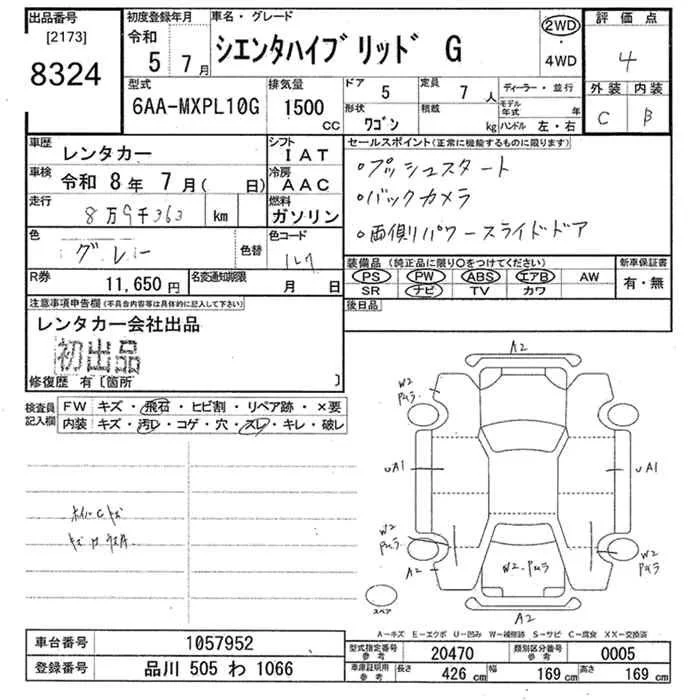 出品番号
[2173]
8324
初度登録年月
令和
5 7月
車名・グレード
シエンタハイブリッド G
2WD
・
4WD
評価点
4
型式
6AA-MXPL10G
排気量
1500
CC
ドア
5
定員
7 人
形状
ワゴン
積載
kg
ディーラー・並行
モデル年式 年
ハンドル 左・右
外装 内装
C B
車歴
レンタカー
シフト
IAT
車検
令和 8年 7月( 日)
冷房
AAC
走行
8万9千363 km
燃料
ガソリン
色
グレー
色替
色コード
1L7
R券
11,650円
名変通知期限
月 日
セールスポイント(正常に機能するものに限ります)
・プッシュスタート
・バックカメラ
・両側パワースライドドア
装備品(純正品に限り○をつけてください)
PS PW ABS エアB AW
SR ナビ TV カワ
新車保証書
有・無
後日品
注意事項申告欄(不具合内容等は具体的に記入して下さい)
レンタカー会社出品
初出品
修復歴 有〔箇所 〕
検査員
記入欄
FW キズ・飛石・ヒビ割・リペア跡・×要
内装 キズ・汚レ・コゲ・穴・スレ・キレ・破レ
A2
W2
Pムラ
UA1
UA1
W2
Pムラ
A2
W2・Pムラ
W2
Pムラ
A2
スペア
A-キズ E-エクボ U-凹み W-補修跡 S-サビ C-腐食 XX-交換済
車台番号
1057952
登録番号
品川 505 わ 1066
型式指定番号
参考
20470
類別区分番号
参考
0005
車庫証明用
参考
長さ 426 cm
幅 169 cm
高さ 169 cm